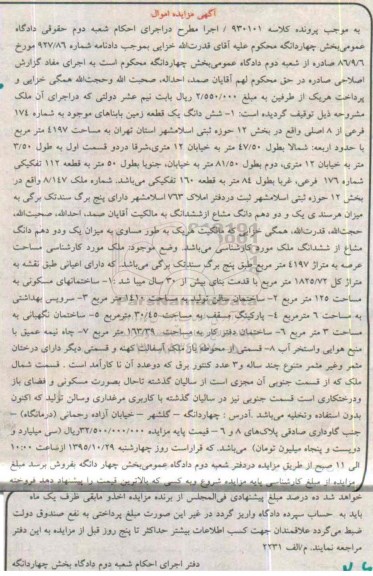 آگهی مزایده اموال
به موجب پرونده کلاسه ۹۳۰۱۰۱ / اجرا مطرح دراجرای احکام شعبه دوم حقوقی دادگاه
عمومی‌بخش چهاردانگه محکوم علیه آقای قدرت‌الله خزایی بموجب دادنامه شماره ۹۲۷/۸۶ مورخ
۸۶/۹/۶ صادره از شعبه دوم دادگاه عمومی‌بخش چهاردانگه محکوم است به اجرای مفاد گزارش
اصلاحی صادره در حق محکوم لهم آقایان صمد، احداله، صحبت الله وحجت‌الله همگی خزایی و
پرداخت هریک از طرفین به مبلغ ۲/۵۵۰/۰۰۰ ریال بابت نیم عشر دولتی که دراجرای آن ملک
مشروحه ذیل توقیف گردیده است: ۱- شش دانگ یک قطعه زمین بابناهای موجود به شماره ۱۷۴
فرعی از ۸ اصلی واقع در بخش ۱۲ حوزه ثبتی اسلامشهر استان تهران به مساحت ۴۱۹۷ متر مربع
با حدود اربعه: شمالا بطول ۴۷/۵۰ متر به خیابان ۱۲ متری،شرقا دردو قسمت اول به طول ۳/۵۰
متر به خیابان ۱۲ متری، دوم بطول ۸۱/۵۰ متر به خیابان، جنوبا بطول ۵۰ متر به قطعه ۱۱۲ تفکیکی
شماره ۱۷۶ فرعی، غربا بطول ۸۴ متر به قطعه ۱۶۰ تفکیکی می‌باشد. شماره ملک ۸/۱۴۷ واقع در
بخش ۱۲ حوزه ثبتی اسلامشهر ثبت دردفتر املاک ۷۶۳ اسلامشهر دارای پنج برگ سندتک برگی به
میزان هرسند ی یک و دو دهم دانگ مشاع ازششدانگ به مالکیت آقایان صمد، احداله، صحبت‌الله،
حجت‌الله، قدرت‌الله، همگی خزایی که مالکیت هریک به طور مساوی به میزان یک ودو دهم دانگ
مشاع از ششدانگ ملک مورد کارشناسی می‌باشد. وضع موجود: ملک مورد کارشناسی مساحت
عرصه به متراژ ۴۱۹۷ متر مربع طبق پنج برگ سندتک برگی می‌باشد. که دارای اعیانی طبق نقشه به
متراژ کل ۱۸۲۵/۷۲ متر مربع با قدمت بنای بیش از ۳۰ سال میبا شد :۱- ساختمانهای مسکونی به
مساحت ۱۲۵ متر مربع ۲- ساختمان سالن تولید به مساحت ۱۴۱۰ متر مربع ۳- سرویس بهداشتی
به مساحت ۶ مترمربع ۴- پارکینگ مسقف به مساحت ۳۰/۴۵ مترمربع ۵- ساختمان نگهبانی به
مساحت ۳ متر مربع ۶- ساختمان دفتر کار به مساحت ۱۶۳/۳۹ متر مربع ۷- چاه نیمه عمیق با
منبع هوایی واستخر آب ۸- قسمتی از محوطه باز ملک آسفالت کهنه و قسمتی دیگر دارای درختان
مثمر وغیر مثمر متنوع چند ساله و۳ عدد کنتور برق که دوعدد آن نا کارآمد است . قسمت شمال
ملک که از قسمت جنوبی آن مجزی است از سالیان گذشته تاحال بصورت مسکونی و فضای باز
ودرختکاری است قسمت جنوبی نیز در سالیان گذشته با کاربری مرغداری وسالن تولید که اکنون
بدون استفاده وتخلیه می‌باشد .آدرس : چهاردانگه – گلشهر – خیابان آزاده رحمانی (درمانگاه) –
جنب گاوداری صادقی پلاک‌های ۸ و ۶ – قیمت پایه مزایده ۳۲/۵۰۰/۰۰۰/۰۰۰ریال (سی میلیارد و
دویست و پنجاه میلیون تومان) می‌باشد. که قراراست روز چهارشنبه ۱۳۹۵/۱۰/۲۹ ازساعت ۱۰:۰۰
الی ۱۱ صبح از طریق مزایده دردفتر شعبه دوم دادگاه عمومی‌بخش چهار دانگه بفروش برسد مبلغ
مزایده از مبلغ کارشناسی پایه مزایده شروع وبه کسی که بالاترین قیمت را پیشنهاد دهد فروخته
خواهد شد ده درصد مبلغ پیشنهادی فی‌المجلس از برنده مزایده اخذو مابقی ظرف یک ماه
باید به حساب سپرده دادگاه واریز گردد در غیر این صورت مبلغ پرداختی به نفع صندوق دولت
ضبط می‌گردد علاقمندان جهت کسب اطلاعات بیشتر حداکثر تا پنج روز قبل از مزایده به این دفتر
مراجعه نمایند. م/الف ۲۲۳۱
دفتر اجرای احکام شعبه دوم دادگاه بخش چهاردانگه